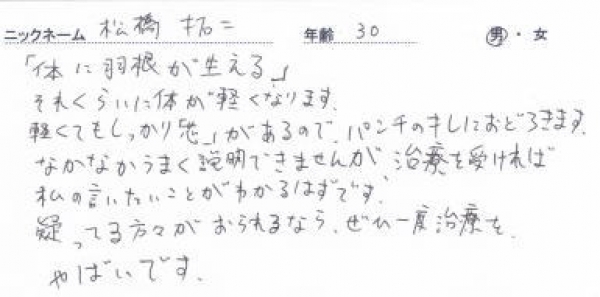 ニックネーム 松橋 拓二 年齢 30 男・女
「体に羽根が生える」
それくらいに体が軽くなります。
軽くてもしっかり「芯」があるので、パンチのキレにおどろきます。
なかなかうまく説明できませんが、治療を受ければ
私の言いたいことがわかるはずです。
疑ってる方々がおられるなら、ぜひ一度治療を。
やばいです。